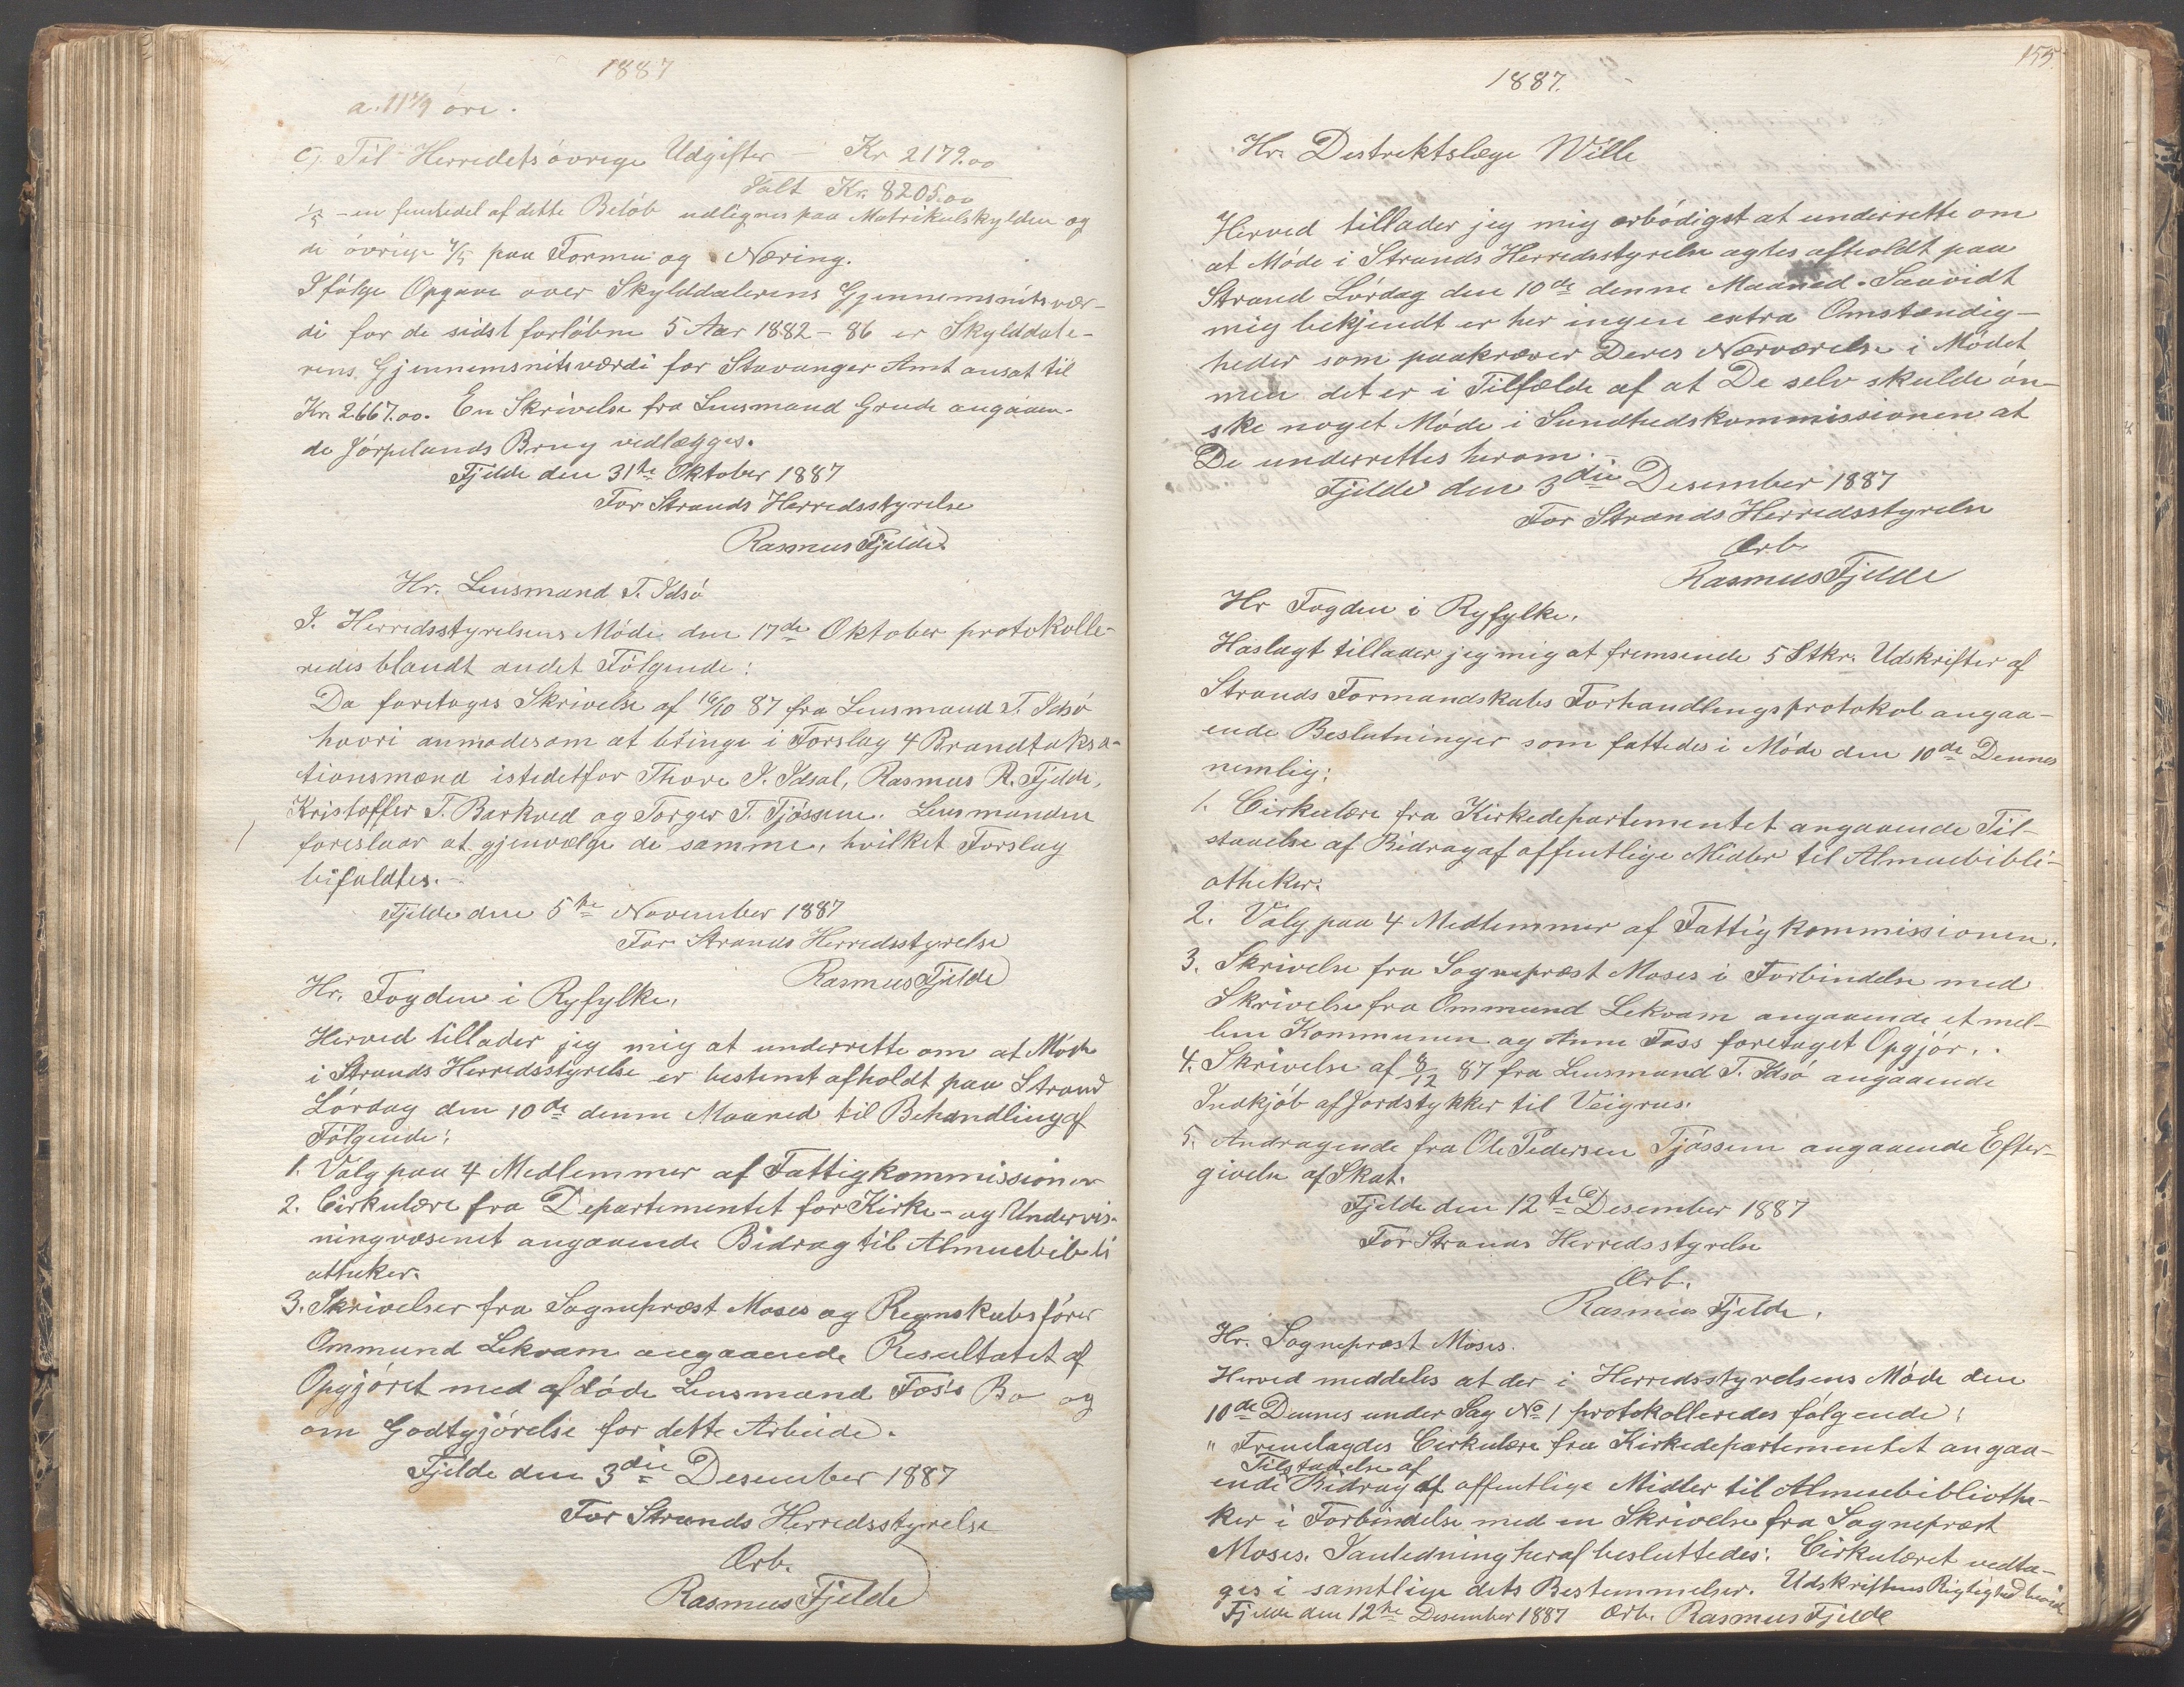 1887
a. 11 1/9 öre.
c) Til Herredets övrige Udgifter Kr 2179.00
Ialt Kr. 8205.00
1/5 - en femtedel af dette Belöb udlignes paa Matrikulskylden og
de övrige 4/5 paa Formue og Næring.
Ifölge Opgave over Skylddalerens Gjennemsnitsvær-
di for de sidst forlöbne 5 Aar 1882 - 86 er Skylddale-
rens Gjennemsnitsværdi for Stavanger Amt ansat til
Kr. 2.667.00. En Skrivelse fra Lensmand Grude angaaen-
de Jörpelands Brug vedlægges.
Fjelde den 31te Oktober 1887
For Strands Herredsstyrelse
Rasmus Fjelde.
Hr. Lensmand T. Idsö
I Herredsstyrelsens Möde den 17de Oktober protokolle-
redes blandt andet Fölgende:
Da foretoges Skrivelse af 16/10 87 fra Lensmand T. Idsö
hvori anmodes om at bringe i Forslag 4 Brandtaksa-
tionsmænd istedetfor Thore I. Idsal, Rasmus R. Fjelde,
Kristoffer T. Barkved og Torger T. Tjössem. Lensmanden
foreslaar at gjenvælge de samme, hvilket Forslag
bifaldtes. -
Fjelde den 5te November 1887
For Strands Herredsstyrelse
Rasmus Fjelde
Hr. Fogden i Ryfylke,
Herved tillader jeg mig at underrette om at Möde
i Strands Herredsstyrelse er bestemt afholdt paa Strand
Lördag den 10de denne Maaned til Behandling af
Fölgende:
1. Valg paa 4 Medlemmer af Fattigkommissionen
2. Cirkulære fra Departementet for Kirke- og Undervis-
ningvæsenet angaaende Bidrag til Almuebibli
otheker.
3. Skrivelser fra Sognepræst Moses og Regnskabsförer
Ommund Lekvam angaaende Resultatet af
Opgjöret med afdöde Lensmand Foss's Bo og
om Godtgjörelse for dette Arbeide.
Fjelde den 3die Desember 1887
For Strands Herredsstyrelse
Ærb.
Rasmus Fjelde
155
1887.
Hr. Destriktslæge Wille
Herved tillader jeg mig ærbödigst at underrette om
at Möde i Strands Herredsstyrelse agtes afholdt paa
Strand Lördag den 10de denne Maaned. Saavidt
mig bekjendt er her ingen extra Omstændig-
heder som paakræver Deres Nærværelse i Mödet
men det er i Tilfælde af at De selv skulde ön-
ske noget Möde i Sundhedskommissionen at
De underrettes herom. -
Fjelde den 3die Desember 1887
For Strands Herredsstyrelse
Ærb
Rasmus Fjelde
Hr Fogden i Ryfylke.
Hoslagt tillader jeg mig at fremsende 5 Stkr. Udskrifter af
Strands Formandskabs Forhandlingsprotokol angaa-
ende Beslutninger som fattedes i Möde den 10de Dennes
nemlig:
1. Cirkulære fra Kirkedepartementet angaaende Til-
staaelse af Bidrag af offentlige Midler til Almuebibli-
otheker.
2. Valg paa 4 Medlemmer af Fattigkommissionen.
3. Skrivelse fra Sognepræst Moses i Forbindelse med
Skrivelse fra Ommund Lekvam angaaende et mel-
lem Kommunen og Anne Foss foretaget Opgjör.
4. Skrivelse af 8/12 87 fra Lensmand T. Idsö angaaende
Indkjöb af Jordstykker til Veigrus.
5. Andragende fra Ole Pedersen Tjössem angaaende Efter-
givelse af Skat.
Fjelde den 12te Desember 1887
For Strands Herredsstyrelse
Ærb.
Rasmus Fjelde.
Hr. Sognepræst Moses.
Herved meddeles at der i Herredsstyrelsens Möde den
10de Dennes under Sag No 1 protokolleredes fölgende:
" Fremlagdes Cirkulære fra Kirkedepartementet angaa-
Tilstaaelse af
ende Bidrag af offentlige Midler til Almuebibliothe-
ker i Forbindelse med en Skrivelse fra Sognepræst
Moses. I anledning heraf besluttedes: Cirkulæret vedta-
ges i samtlige dets Bestemmelser. Udskriftens Rigtighed
Fjelde den 12te Desember 1887 Ærb. Rasmus Fjelde